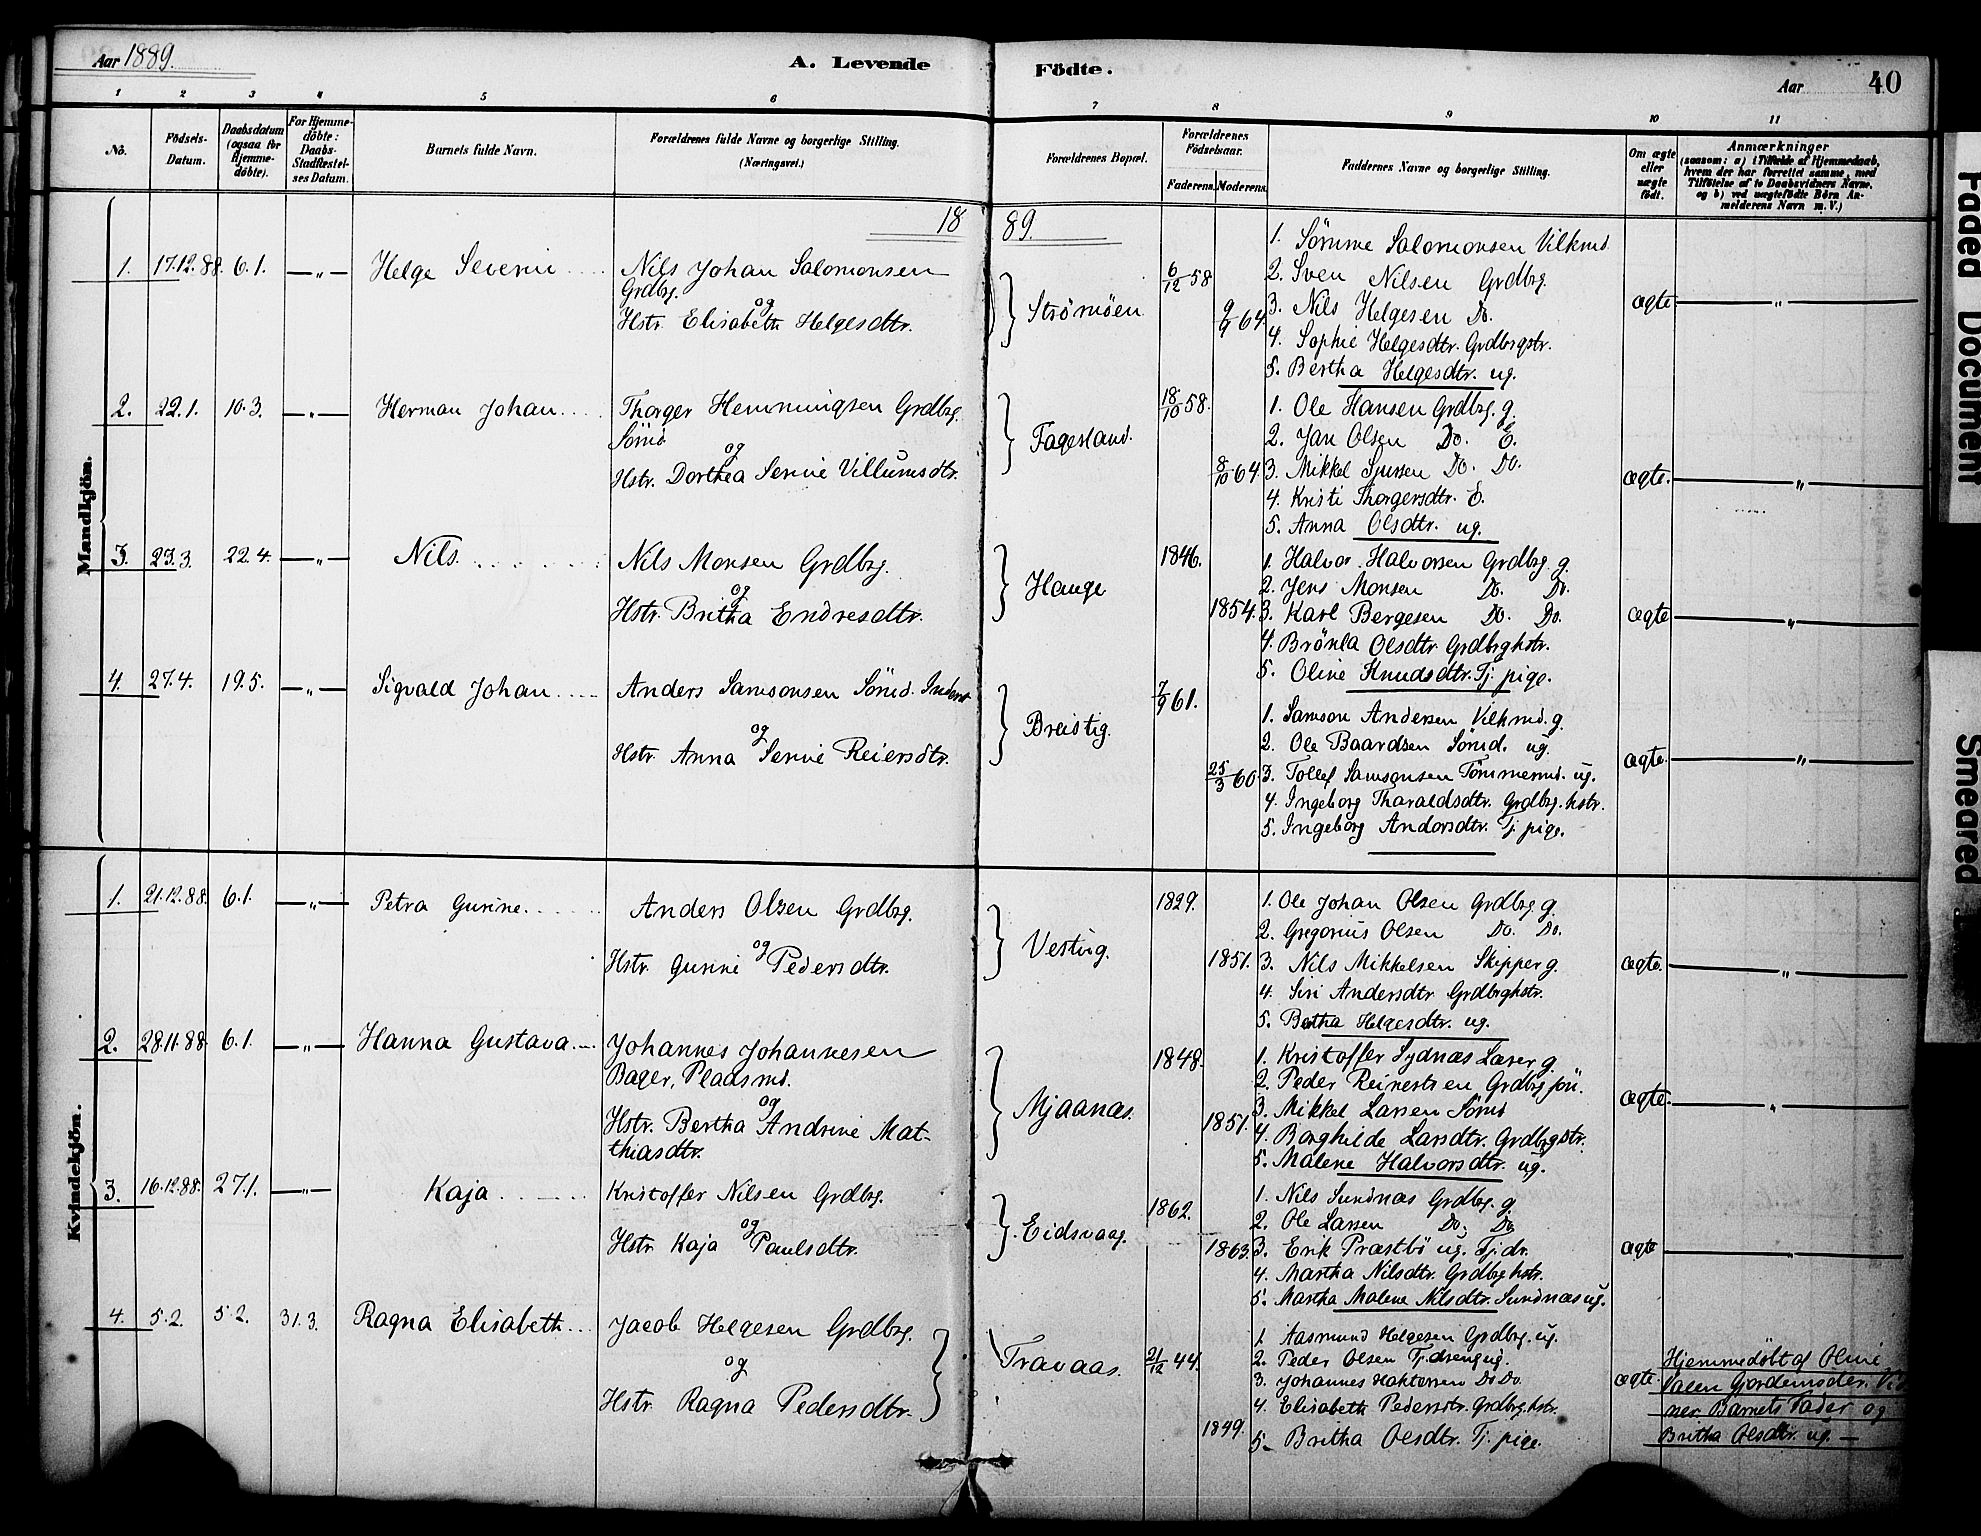 Aar 1889.
A. Levende Födte.
Aar 40
1 2 3 4 5 6 7 8 9 10 11
No.
Födsels-Datum.
Daabsdatum (ogsaa for Hjemme-döbte).
For Hjemme-döbte: Daabs-Stadfæstel-ses Datum.
Barnets fulde Navn.
Forældrenes fulde Navne og borgerlige Stilling. (Næringsvei.)
Forældrenes Bopæl.
Forældrenes Födselsaar.
Faderens. Moderens.
Faddernes Navne og borgerlige Stilling.
Om ægte eller uægte födt.
Anmærkninger
(saasom: a) i Tilfælde af Hjemmedaab,
hvem der har forrettet samme, med
Tilföielse af to Daabsvidners Navne,
og b) ved uægtefödte Börn An-
melderens Navn m. V.)
1889.
Mandkjön.
1. 17.12.88. 6.1. —„— Helge Severin
Nils Johan Salomonsen
Grdbrg.
og
Hstr. Elisabeth Helgesdtr.
Strömöen
6/12 58
9/9 64
1. Sömme Salomonsen Vilkmd.
2. Sven Nilsen Grdbrg.
3. Nils Helgesen Do.
4. Sophie Helgesdtr. Grdbrgstr.
5. Bertha Helgesdtr. ug.
ægte —„—
2. 22.1. 10.3. —„— Herman Johan
Thorger Hemmingsen Grdbrg.
Sömd.
og
Hstr. Dorthea Serine Villumsdtr.
Fagerland.
18/10 58.
8/10 64
1. Ole Hansen Grdbrg. g.
2. Jan Olsen Do. E.
3. Mikkel Sjursen Do. Do.
4. Kristi Thorgersdtr. E.
5. Anna Olsdtr. ug.
ægte. —„—
3. 23.3. 22.4. —„— Nils
Nils Monsen Grdbrg.
og
Hstr. Britha Endresdtr.
Hauge
1846.
1854.
1. Halvor Halvorsen Grdbrg. g.
2. Jens Monsen Do. Do.
3. Karl Bergesen Do. Do.
4. Brönla Olsdtr. Grdbrghstr.
5. Oline Knudsdtr. Tj. pige.
ægte —„—
4. 27.4. 19.5. —„— Sigvald Johan
Anders Samsonsen Sömd. Inderst
og
Hstr. Anna Serine Reiersdtr.
Breistig.
7/9 61.
25/3 60
1. Samson Andersen Vilkmd. g.
2. Ole Baardsen Sömd. ug.
3. Tollef Samsonsen Tömmermd. ug.
4. Ingeborg Tharaldsdtr. Grdbrg. hstr.
5. Ingeborg Andorsdtr. Tj. pige.
ægte. —„—
Kvindekjön.
1. 21.12.88. 6.1. —„— Petra Gurine
Anders Olsen Grdbrg.
og
Hstr. Gurine Pedersdtr.
Vestvig.
1829.
1851.
1. Ole Johan Olsen Grdbrg. g.
2. Gregorius Olsen Do. Do.
3. Nils Mikkelsen Skipper g.
4. Siri Andersdtr Grdbrghstr.
5. Bertha Helgesdtr. ug.
ægte. —„—
2. 28.11.88. 6.1. —„— Hanna Gustava
Johannes Johannesen
Bager, Pladsmd.
og
Hstr. Bertha Andrine Mat-
thiasdtr.
Mjaanæs.
1848.
1851.
1. Kristoffer Sydnæs Lærer g.
2. Peder Reinertsen Grdbrg jön.
3. Mikkel Larsen Sömd
4. Borghilde Larsdtr. Grdbrgstr.
5. Malene Halvorsdtr. ug.
ægte. —„—
3. 16.12.88. 27.1. —„— Kaja
Kristoffer Nilsen Grdbrg.
og
Hstr. Kaja Paulsdtr.
Eidsvaag.
1862.
1863.
1. Nils Sundnæs Grdbrg. g.
2. Ole Larsen Do. Do.
3. Erik Præstbö ug. Tj.dr.
4. Martha Nilsdtr. Grdbrghstr.
5. Martha Malene Nilsdtr. Sundnæs ug.
ægte —„—
4. 5.2. 5.2. 31.3. Ragna Elisabeth
Jacob Helgesen Grdbrg.
og
Hstr. Ragna Pedersdtr.
Travaas.
21/12 44.
1849.
1. Aasmund Helgesen Grdbrg. ug.
2. Peder Olsen Tj.dreng ug.
3. Johannes Haktorsen Do Do.
4. Elisabeth Pedersdtr. Grdbrg.hstr.
5. Britha Olsdtr. Tj. pige.
ægte
Hjemmedöbt af Oline
Valen Gjordemoder. Vid
ner Barnets Fader og
Britha Olsdtr. ug. —
Faded Document
Smeared